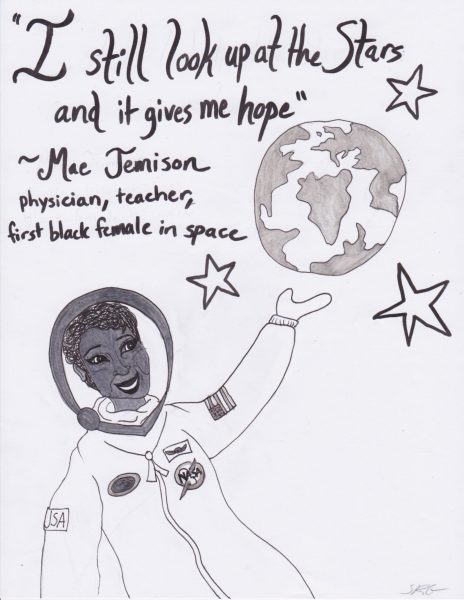 "I still look up at the Stars
and it gives me hope"
~Mae Jemison
physician, teacher,
first black female in space
NASA
JSA